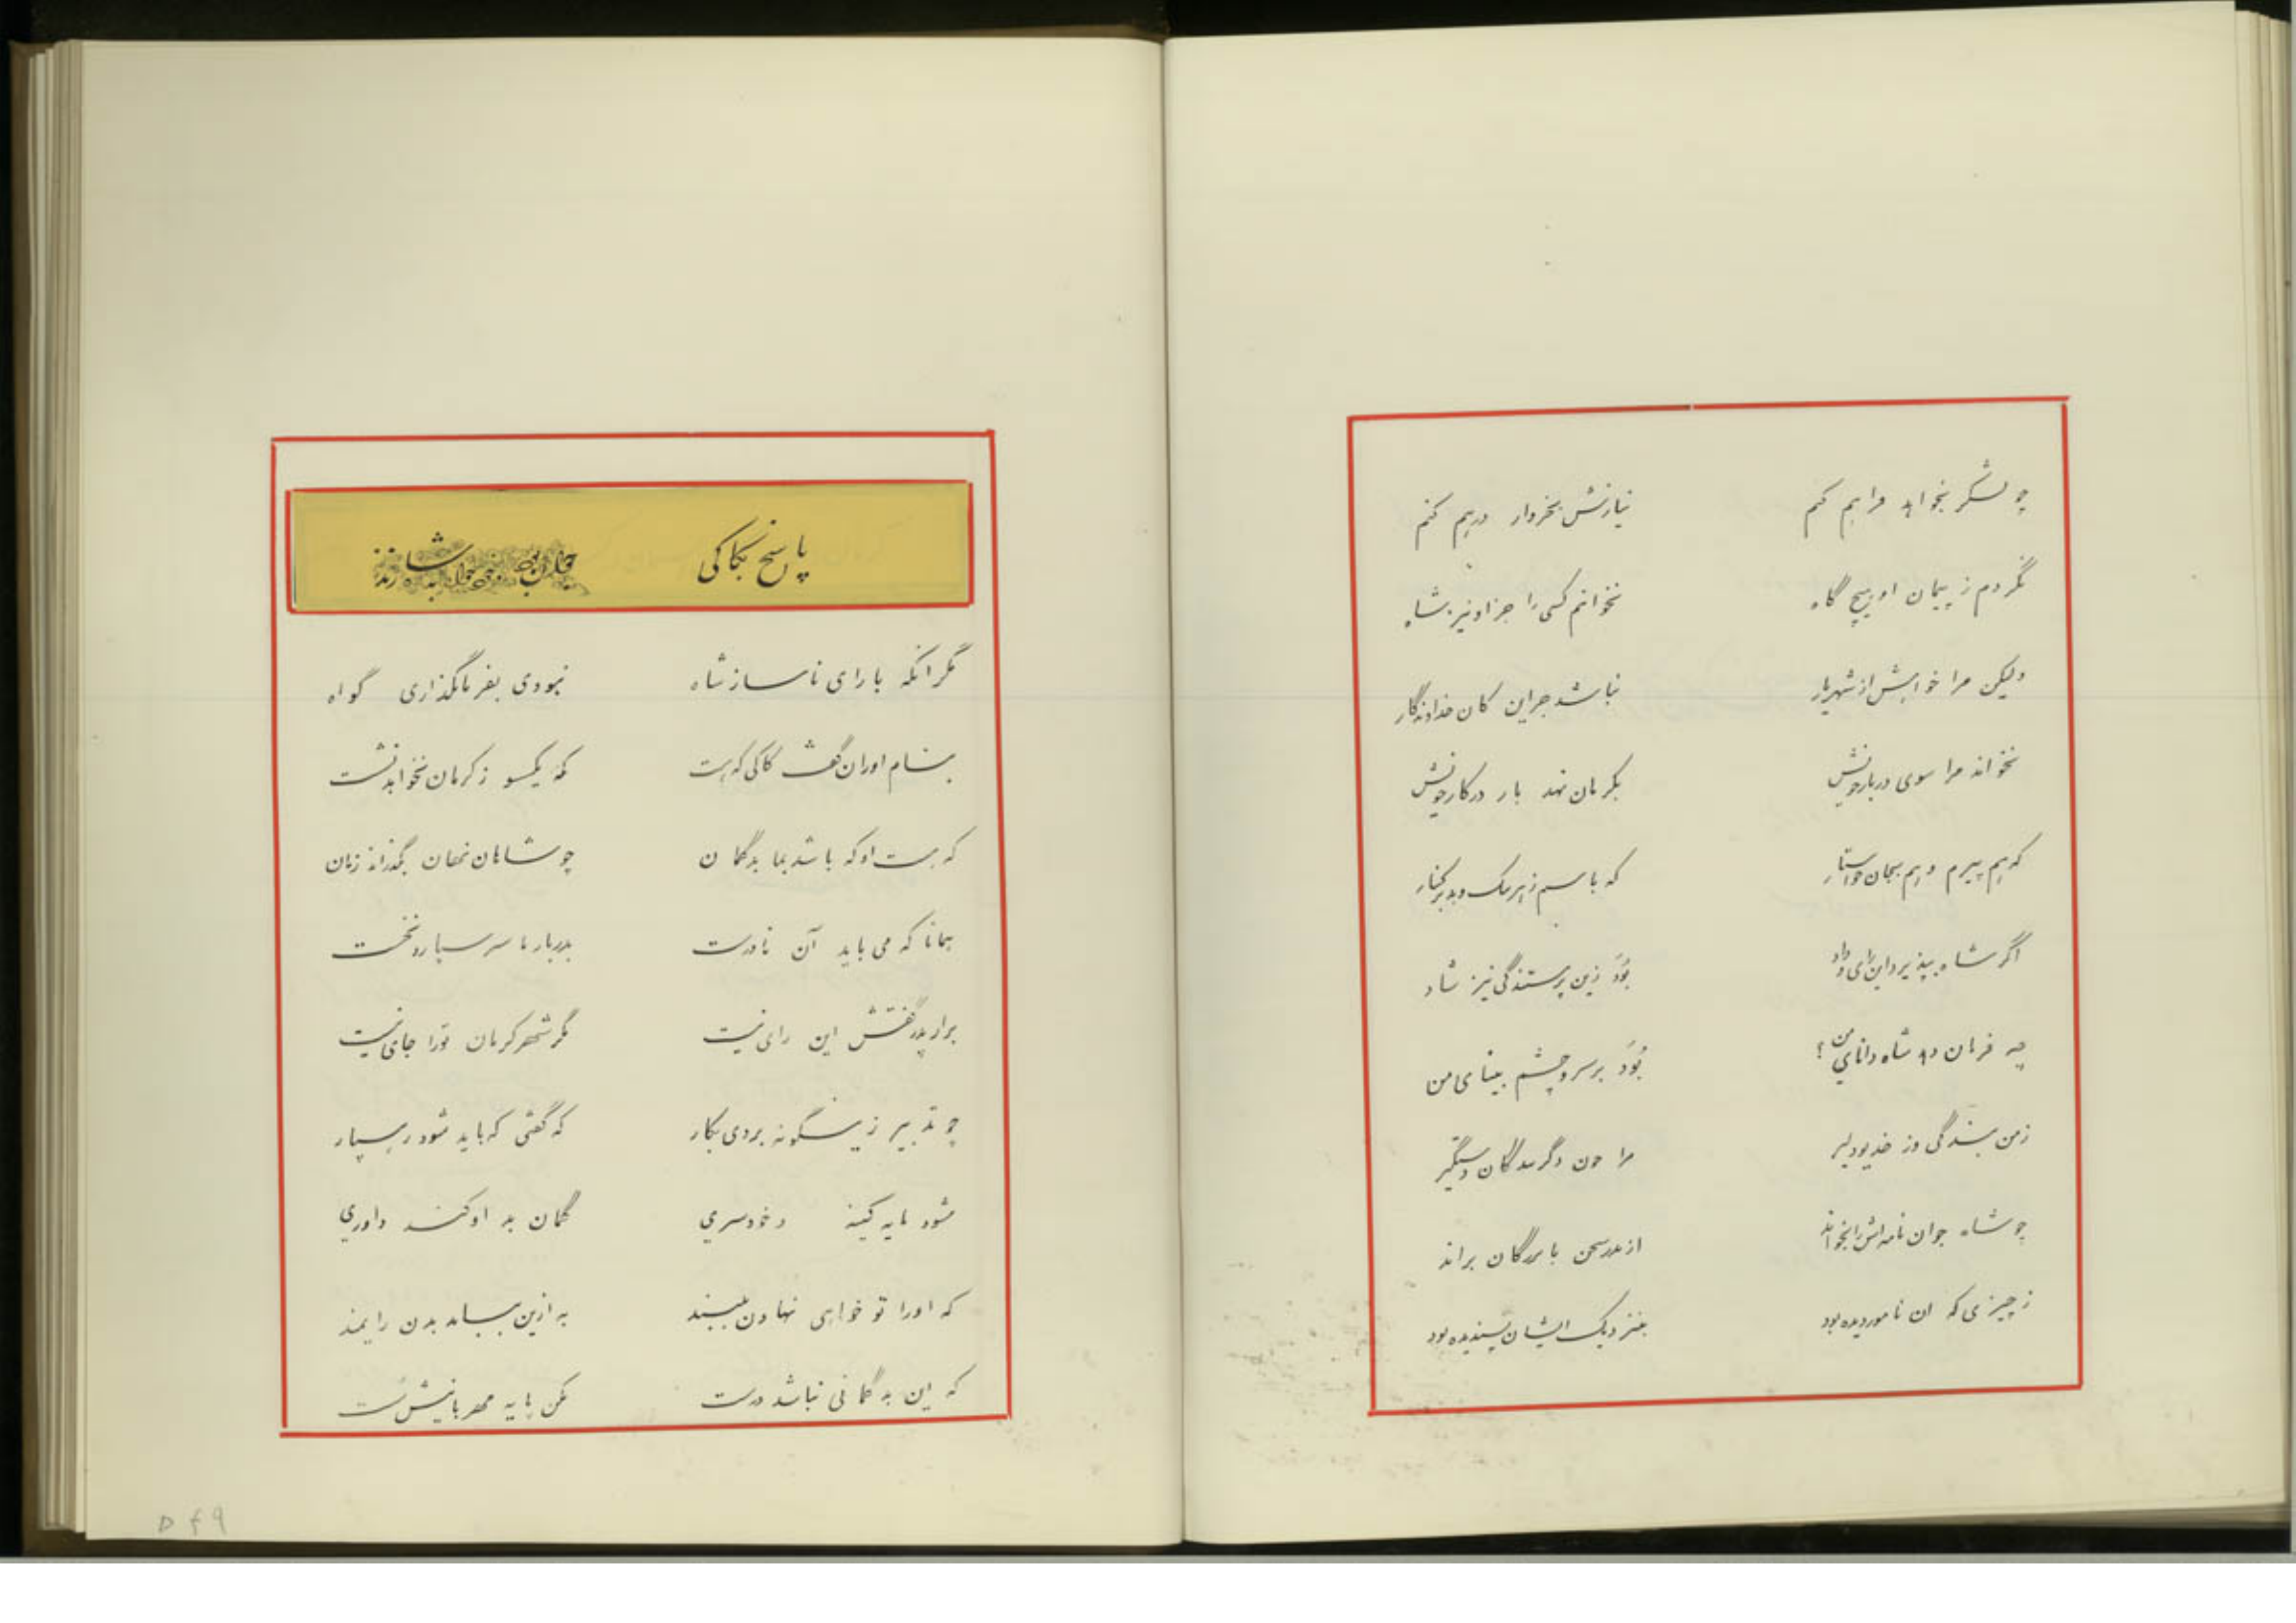 چو لشکر بخواهد فراهم کنم نیازش بخروار درهم کنم
نگردم ز پیمان او هیچ گاه نخوانم کسی را جز او نیز شاه
ولیکن مرا خواهش از شهریار نباشد جز این کان خداوندگار
نخواند مرا سوی دربار خویش بکرمان نهد بار در کار خویش
که هم پیرم و هم بجان خواستار که باشم ز هر نیک و بد بر کنار
اگر شاه بپذیرد این رای و داد بُوَد زین پرستندگی نیز شاد
چه فرمان دهد شاه دانای من؟ بُوَد بر سر و چشم بینای من
ز من بندگی وز خدیو دلیر مرا چون دگر بندگان دستگیر
چو شاه جوان نامه‌اش را بخواند از هدر سخن با بزرگان براند
ز چیزی که آن نامور دیده بود بنزدیک ایشان پسندیده بود
پاسخ بکاکی
مگر آنکه با رای ناساز شاه نبودی بفرمانگذاری گواه
بشاه اوران گفت کاکی که هست که یکسو ز کرمان نخواهد نشست
که هست او که باشد بما بدگمان چو شاهان نهان بگذراند زمان
همانا که می باید آن نادرست بدربار ما سر سپارد نخست
برادر پدر گفتش این رای نیست مگر شهر کرمان تو را جای نیست
چو تدبیر زینگونه بردی بکار که گفتی که باید شود رهسپار
شود مایه کینه و خودسری گمان بد او کند داوری
که او را تو خواهی نهادن ببند به ازین بباید بدن رایمند
که این بدگمانی نباشد درست مکن پایه مهربانیش سست
۵۴۹